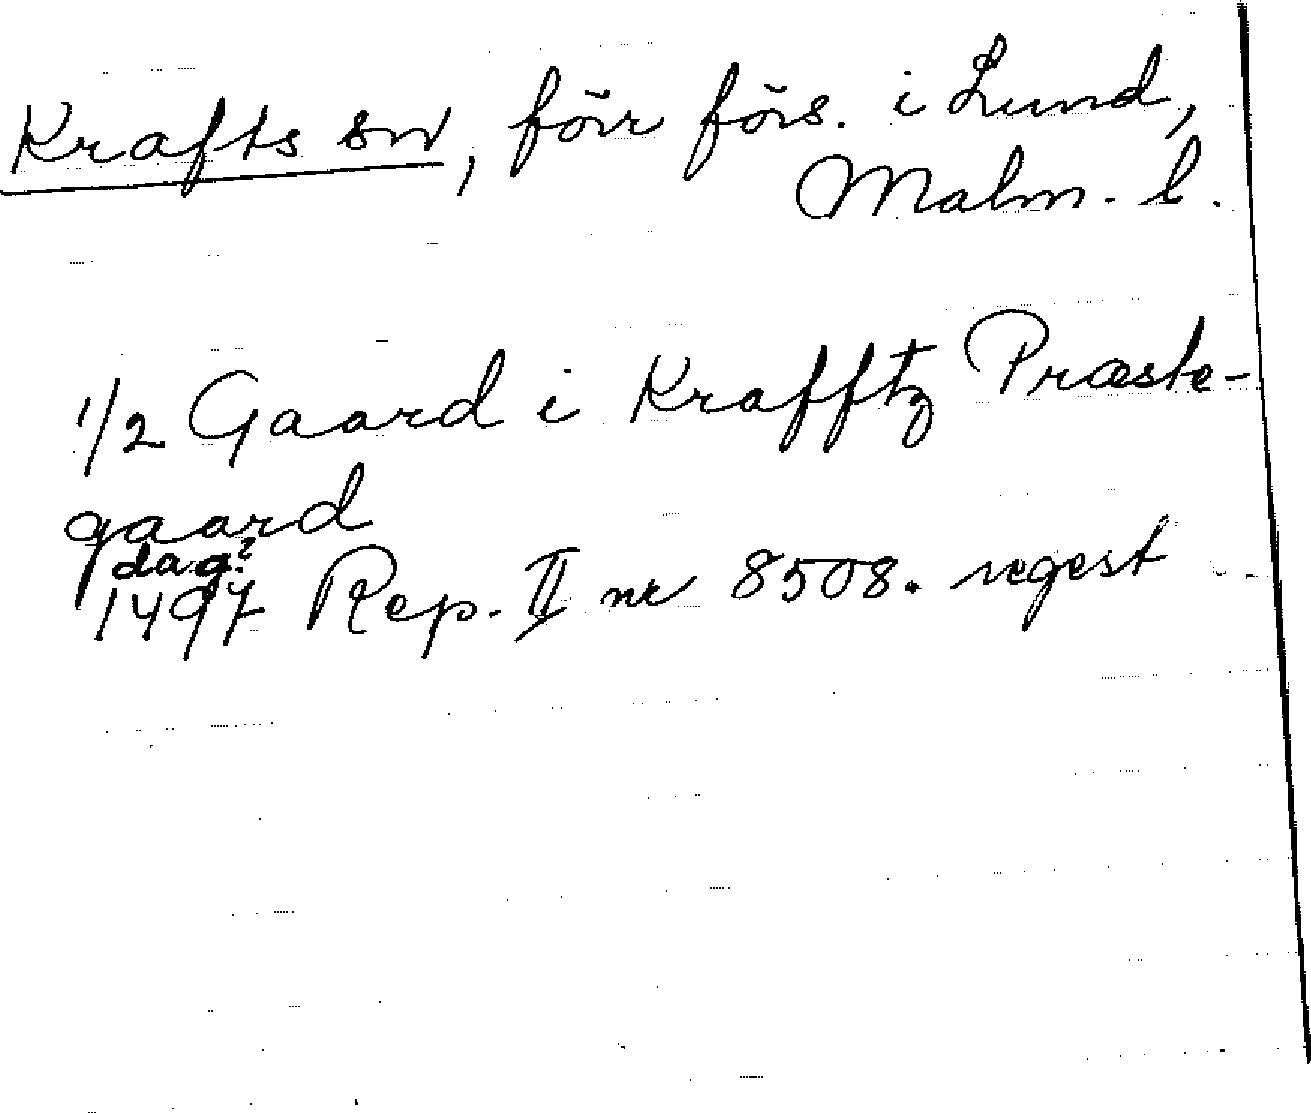 Krafts sn, förr förs. i Lund,
Malm. l.
1/2 Gaard i Krafftz Præste-
gaard
dag?
1497 Rep. II nr 8508. regest